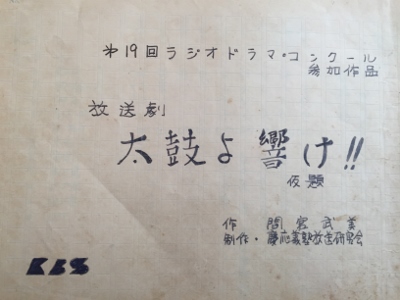 第19回ラジオドラマ・コンクール
参加作品
放送劇
太鼓よ響け!!
仮題
作 間宮武美
制作・慶応義塾放送研究会
KBS